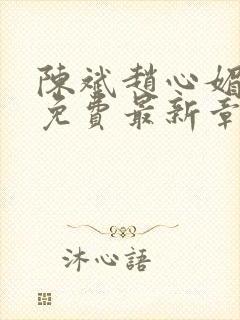 陳斌趙心媚
免費最新章
沐心語